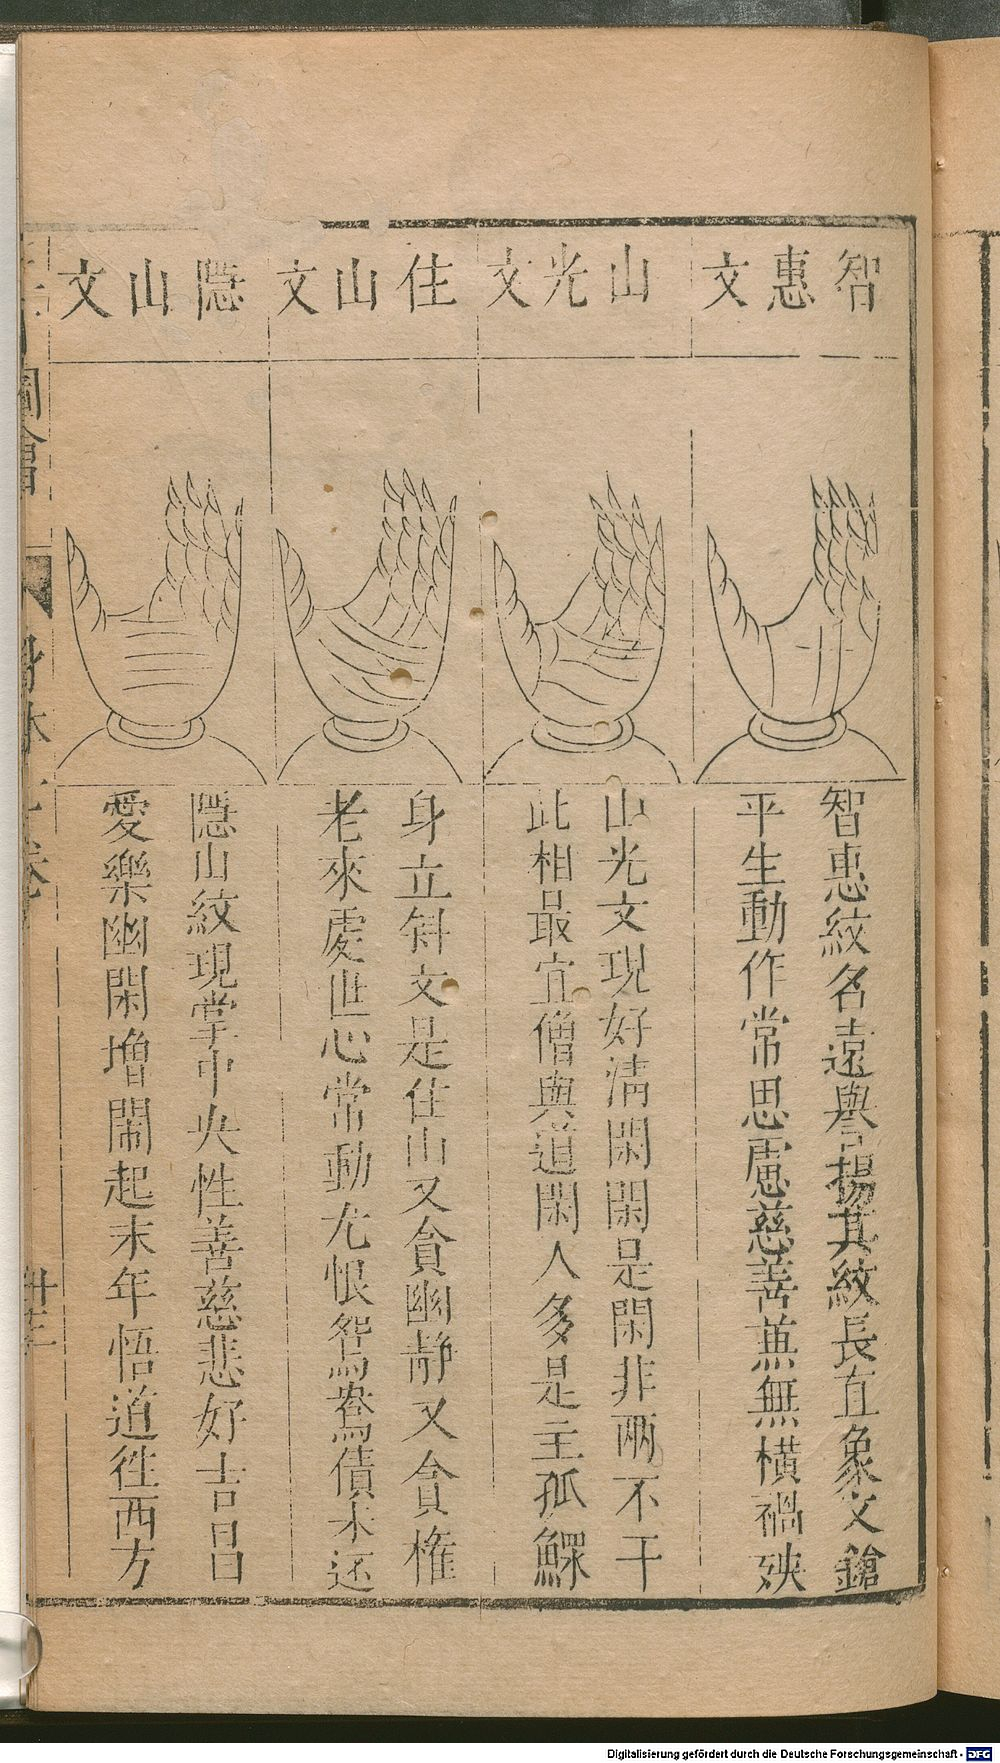 智惠文
智惠紋名遠與揚其紋長直象文鎗
平生動作常思慮慈善蒹無橫禍殃
山光文
山光文現好清閑閑是閑非兩不干
此相最宜僧與道閑人多是主孤鰥
住山文
身立斜文是住山又貪幽靜又貪権
老來處世心常動尤恨鴛鴦債未还
隱山文
隱山紋現掌中央性善慈悲好吉昌
愛樂幽閑增閙起末年悟道徃西方
圖會
身體
卷
Digitalisierung gefördert durch die Deutsche Forschungsgemeinschaft - DFG